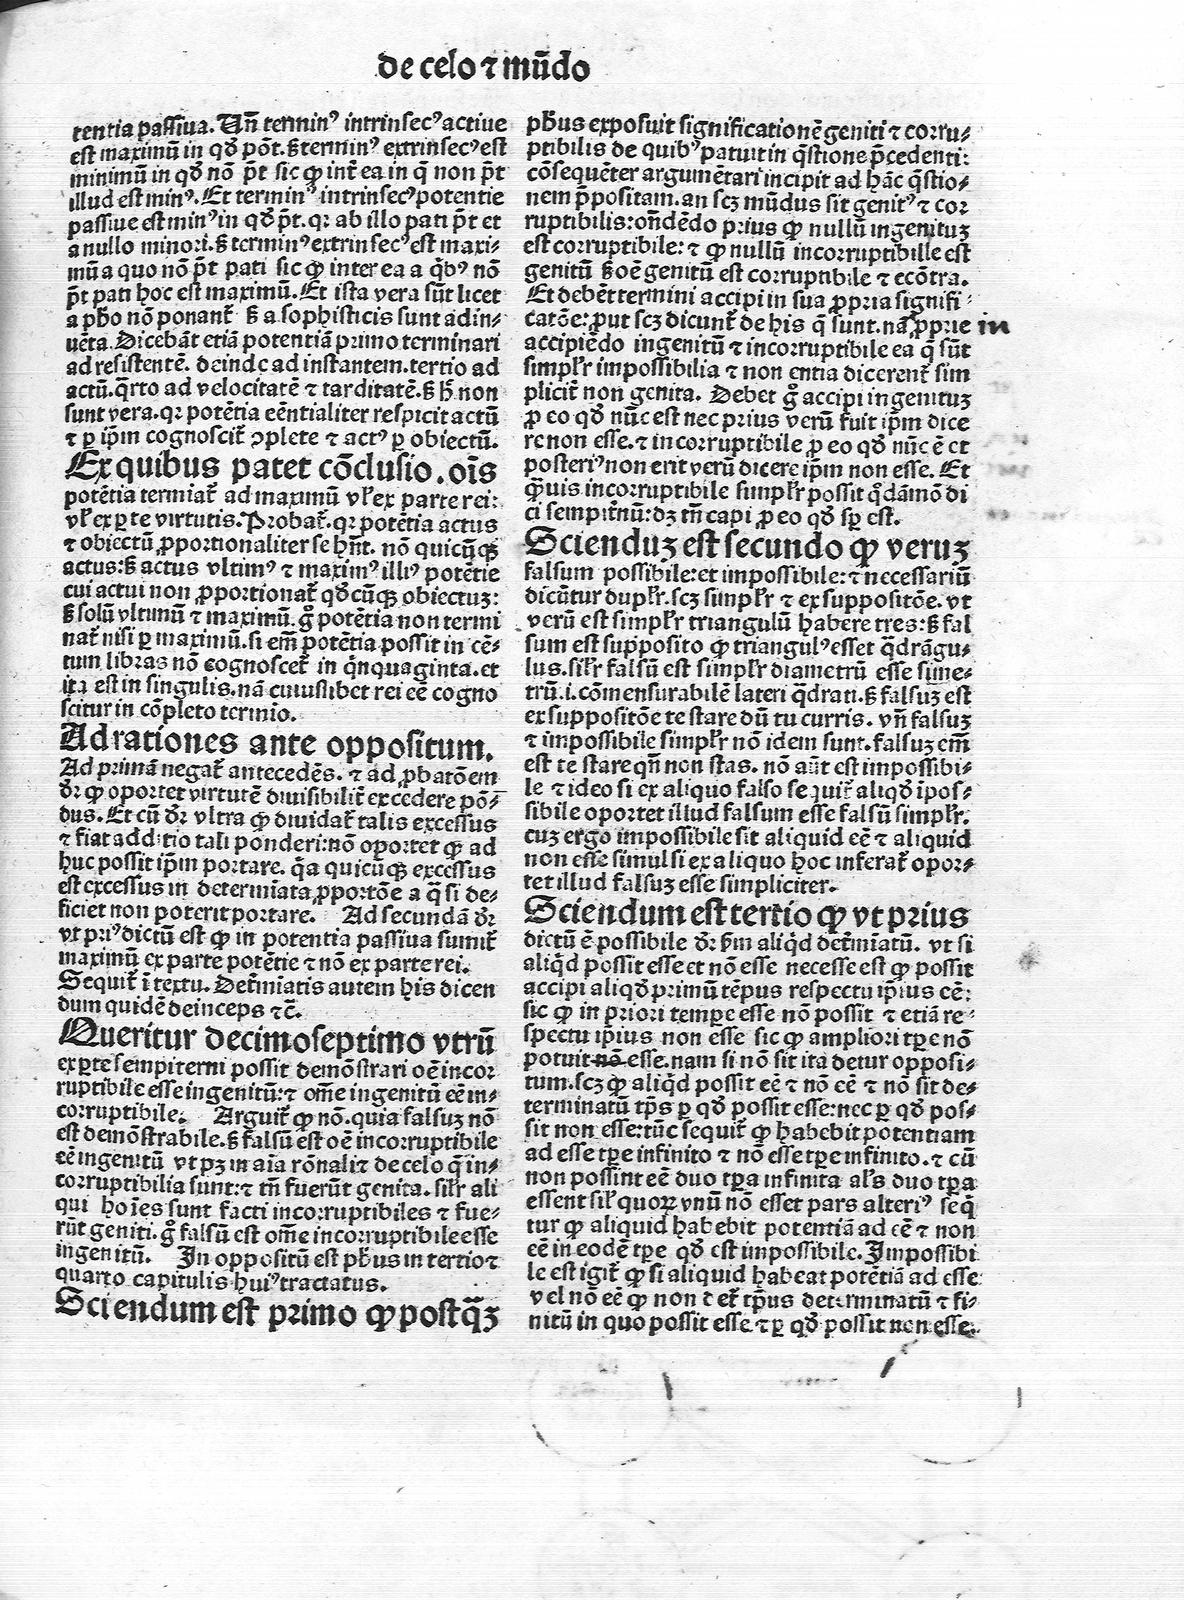 de celo ⁊ mūdo
tentia passiua. Uñ terminꝰ intrinsecꝰ actiue
est maximū in qđ pōt. s̄ terminꝰ extrinsecꝰ est
minimū in qđ nō pt̄ sic ꝙ int̄ ea in q̄ non pt̄
illud est minꝰ. Et terminꝰ intrinsecꝰ potentie
passiue est minꝰ in qđ pt̄. qꝛ ab illo pati pt̄ et
a nullo minori. s̄ terminꝰ extrinsecꝰ est maxi-
mū a quo nō pt̄ pati sic ꝙ inter ea a q̇bꝰ nō
pt̄ pati hoc est maximū. Et ista vera sūt licet
a pħo nō ponant᷑ s̄ a sophisticis sunt adin-
uēta. Dicebāt etiā potentiā primo terminari
ad resistentē. deinde ad instantem. tertio ad
actū. q̄rto ad velocitatē ⁊ tarditatē. s̄ h̄ non
sunt vera. qꝛ potētia eēntialiter respicit actū
⁊ ꝑ ip̄m cognoscit᷑ ꝯplete ⁊ actꝰ ꝑ obiectū.
Ex quibus patet cōclusio. oīs
potētia termiat᷑ ad maximū vl̓ ex parte rei:
vl̓ ex ꝑte virtutis. Probat᷑. qꝛ potētia actus
⁊ obiectū ꝓportionaliter se hn̄t. nō quicūqꝫ
actus: s̄ actus vltimꝰ ⁊ maximꝰ illiꝰ potētie
cui actui non ꝓportionat᷑ qđcūqꝫ obiectuꝫ:
s̄ solū vltimū ⁊ maximū. g̊ potētia non termi
nat᷑ nisi ꝑ maximū. si em̄ potētia possit in cē-
tum libras nō cognoscet᷑ in q̄nquaginta. et
ita est in singulis. nā cuiuslibet rei eē cogno
scitur in cōpleto termio.
Ad rationes ante oppositum.
Ad primā negat᷑ antecedēs. ⁊ ad ꝓbatōem
dꝛ̄ ꝙ oportet virtutē diuisibilit᷑ excedere pō-
dus. Et cū dꝛ̄ vltra ꝙ diuidat᷑ talis excessus
⁊ fiat additio tali ponderi: nō oportet ꝙ ad
huc possit ip̄m portare. q̇a quicūqꝫ excessus
est excessus in determiata ꝓportōe a q̄ si de-
ficiet non poterit portare. Ad secundā dꝛ̄
vt priꝰ dictū est ꝙ in potentia passiua sumit᷑
maximū ex parte potētie ⁊ nō ex parte rei.
Sequit᷑ ī textu. Det᷑miatis autem his dicen
dum quidē deinceps ⁊c̄.
Queritur decimoseptimo vtrū
ex ꝑte sempiterni possit demōstrari oē incor
ruptibile esse ingenitū: ⁊ om̄e ingenitū eē in-
corruptibile. Arguit᷑ ꝙ nō. quia falsuꝫ nō
est demōstrabile. s̄ falsū est oē incorruptibile
eē ingenitū vt pꝫ in aīa rōnali ⁊ de celo q̄ in-
corruptibilia sunt: ⁊ tn̄ fuerūt genita. sil̓r ali
qui hoīes sunt facti incorruptibiles ⁊ fue-
rūt geniti. g̊ falsū est om̄e incorruptibile esse
ingenitū. In oppositū est pħus in tertio ⁊
quarto capitulis huiꝰ tractatus.
Sciendum est primo ꝙ postq̄ꝫ
pħus exposuit significationē geniti ⁊ corru-
ptibilis de quibꝰ patuit in q̄stione p̄cedenti:
cōsequēter argumētari incipit ad hāc q̄stio-
nem p̄positam. an scꝫ mūdus sit genitꝰ ⁊ cor
ruptibilis: on̄dēdo prius ꝙ nullū ingenituꝫ
est corruptibile: ⁊ ꝙ nullū incorruptibille est
genitū s̄ oē genitū est corruptibile ⁊ ecōtra.
Et debēt termini accipi in sua ꝓpria signifi-
catōe: ꝓut scꝫ dicunt᷑ de his q̄ sunt. nā ꝓprie in
accipiēdo ingenitū ⁊ incorruptibile ea q̄ sūt
simpl̓r impossibilia ⁊ non entia dicerent᷑ sim
plicit᷑ non genita. Debet g̊ accipi ingenituꝫ
ꝓ eo qđ nūc est nec prius verū fuit ip̄m dice
re non esse. ⁊ incorruptibile ꝓ eo qđ nūc ē et
posteriꝰ non erit verū dicere ip̄m non esse. Et
q̄uis incorruptibile simpl̓r possit q̊dāmō di
ci sempit᷑nū: dꝫ tn̄ capi ꝓ eo qđ sꝑ est.
Scienduꝫ est secundo ꝙ veruꝫ
falsum possibile: et impossibile: ⁊ necessariū
dicūtur dupl̓r. scꝫ simpl̓r ⁊ ex suppositōe. vt
verū est simpl̓r triangulū habere tres: s̄ fal
sum est supposito ꝙ triangulꝰ esset q̄drāgu-
lus. sil̓r falsū est simpl̓r diametrū esse sime-
trū. i. cōmensurabilē lateri q̄drati. s̄ falsuꝫ est
ex suppositōe te stare dū tu curris. vn̄ falsuꝫ
⁊ impossibile simpl̓r nō idem sunt. falsuꝫ em̄
est te stare qn̄ non stas. nō aūt est impossibi-
le ⁊ ideo si ex aliquo falso sequit᷑ aliqđ īpos-
sibile oportet illud falsum esse falsū simpl̓r.
cuꝫ ergo impossibile sit aliquid eē ⁊ aliquid
non esse simul si ex aliquo hoc inferat᷑ opor-
tet illud falsuꝫ esse simpliciter.
Sciendum est tertio ꝙ vt prius
dictū ē possibile dꝛ̄ s̄m aliq̇d det᷑miātū. vt si
aliq̇d possit esse et nō esse necesse est ꝙ possit
accipi aliqđ primū tēpus respectu ip̄ius eē:
sic ꝙ in priori tempꝛe esse nō possit ⁊ etiā re-
spectu ip̄ius non esse sic ꝙ ampliori tꝑe nō
potuit nō esse. nam si nō sit ita detur opposi-
tum. scꝫ ꝙ aliq̇d possit eē ⁊ nō eē ⁊ nō sit de-
terminatū tp̄s ꝑ qđ possit esse: nec ꝑ qđ pos-
sit non esse: tūc sequit᷑ ꝙ habebit potentiam
ad esse tꝑe infinito ⁊ nō esse tꝑe infinito. ⁊ cū
non possint eē duo tꝑa infinita al̓s duo tꝑa
essent sil̓ quoꝝ vnū nō esset pars alteriꝰ seq̇
tur ꝙ aliquid habebit potentiā ad eē ⁊ non
eē in eodē tꝑe qđ est impossibile. Impossibi
le est igit᷑ ꝙ si aliquid habeat potētiā ad esse
vel nō eē ꝙ non det᷑ tp̄us determinatū ⁊ fi-
nitū in quo possit esse ⁊ ꝑ qđ possit non esse.